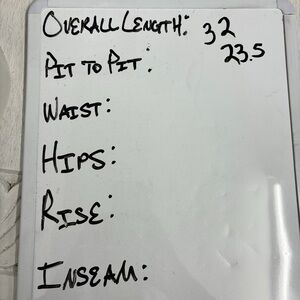 OVERALL LENGTH: 32
PIT TO PIT: 23.5
WAIST:
HIPS:
RISE:
INSEAM: